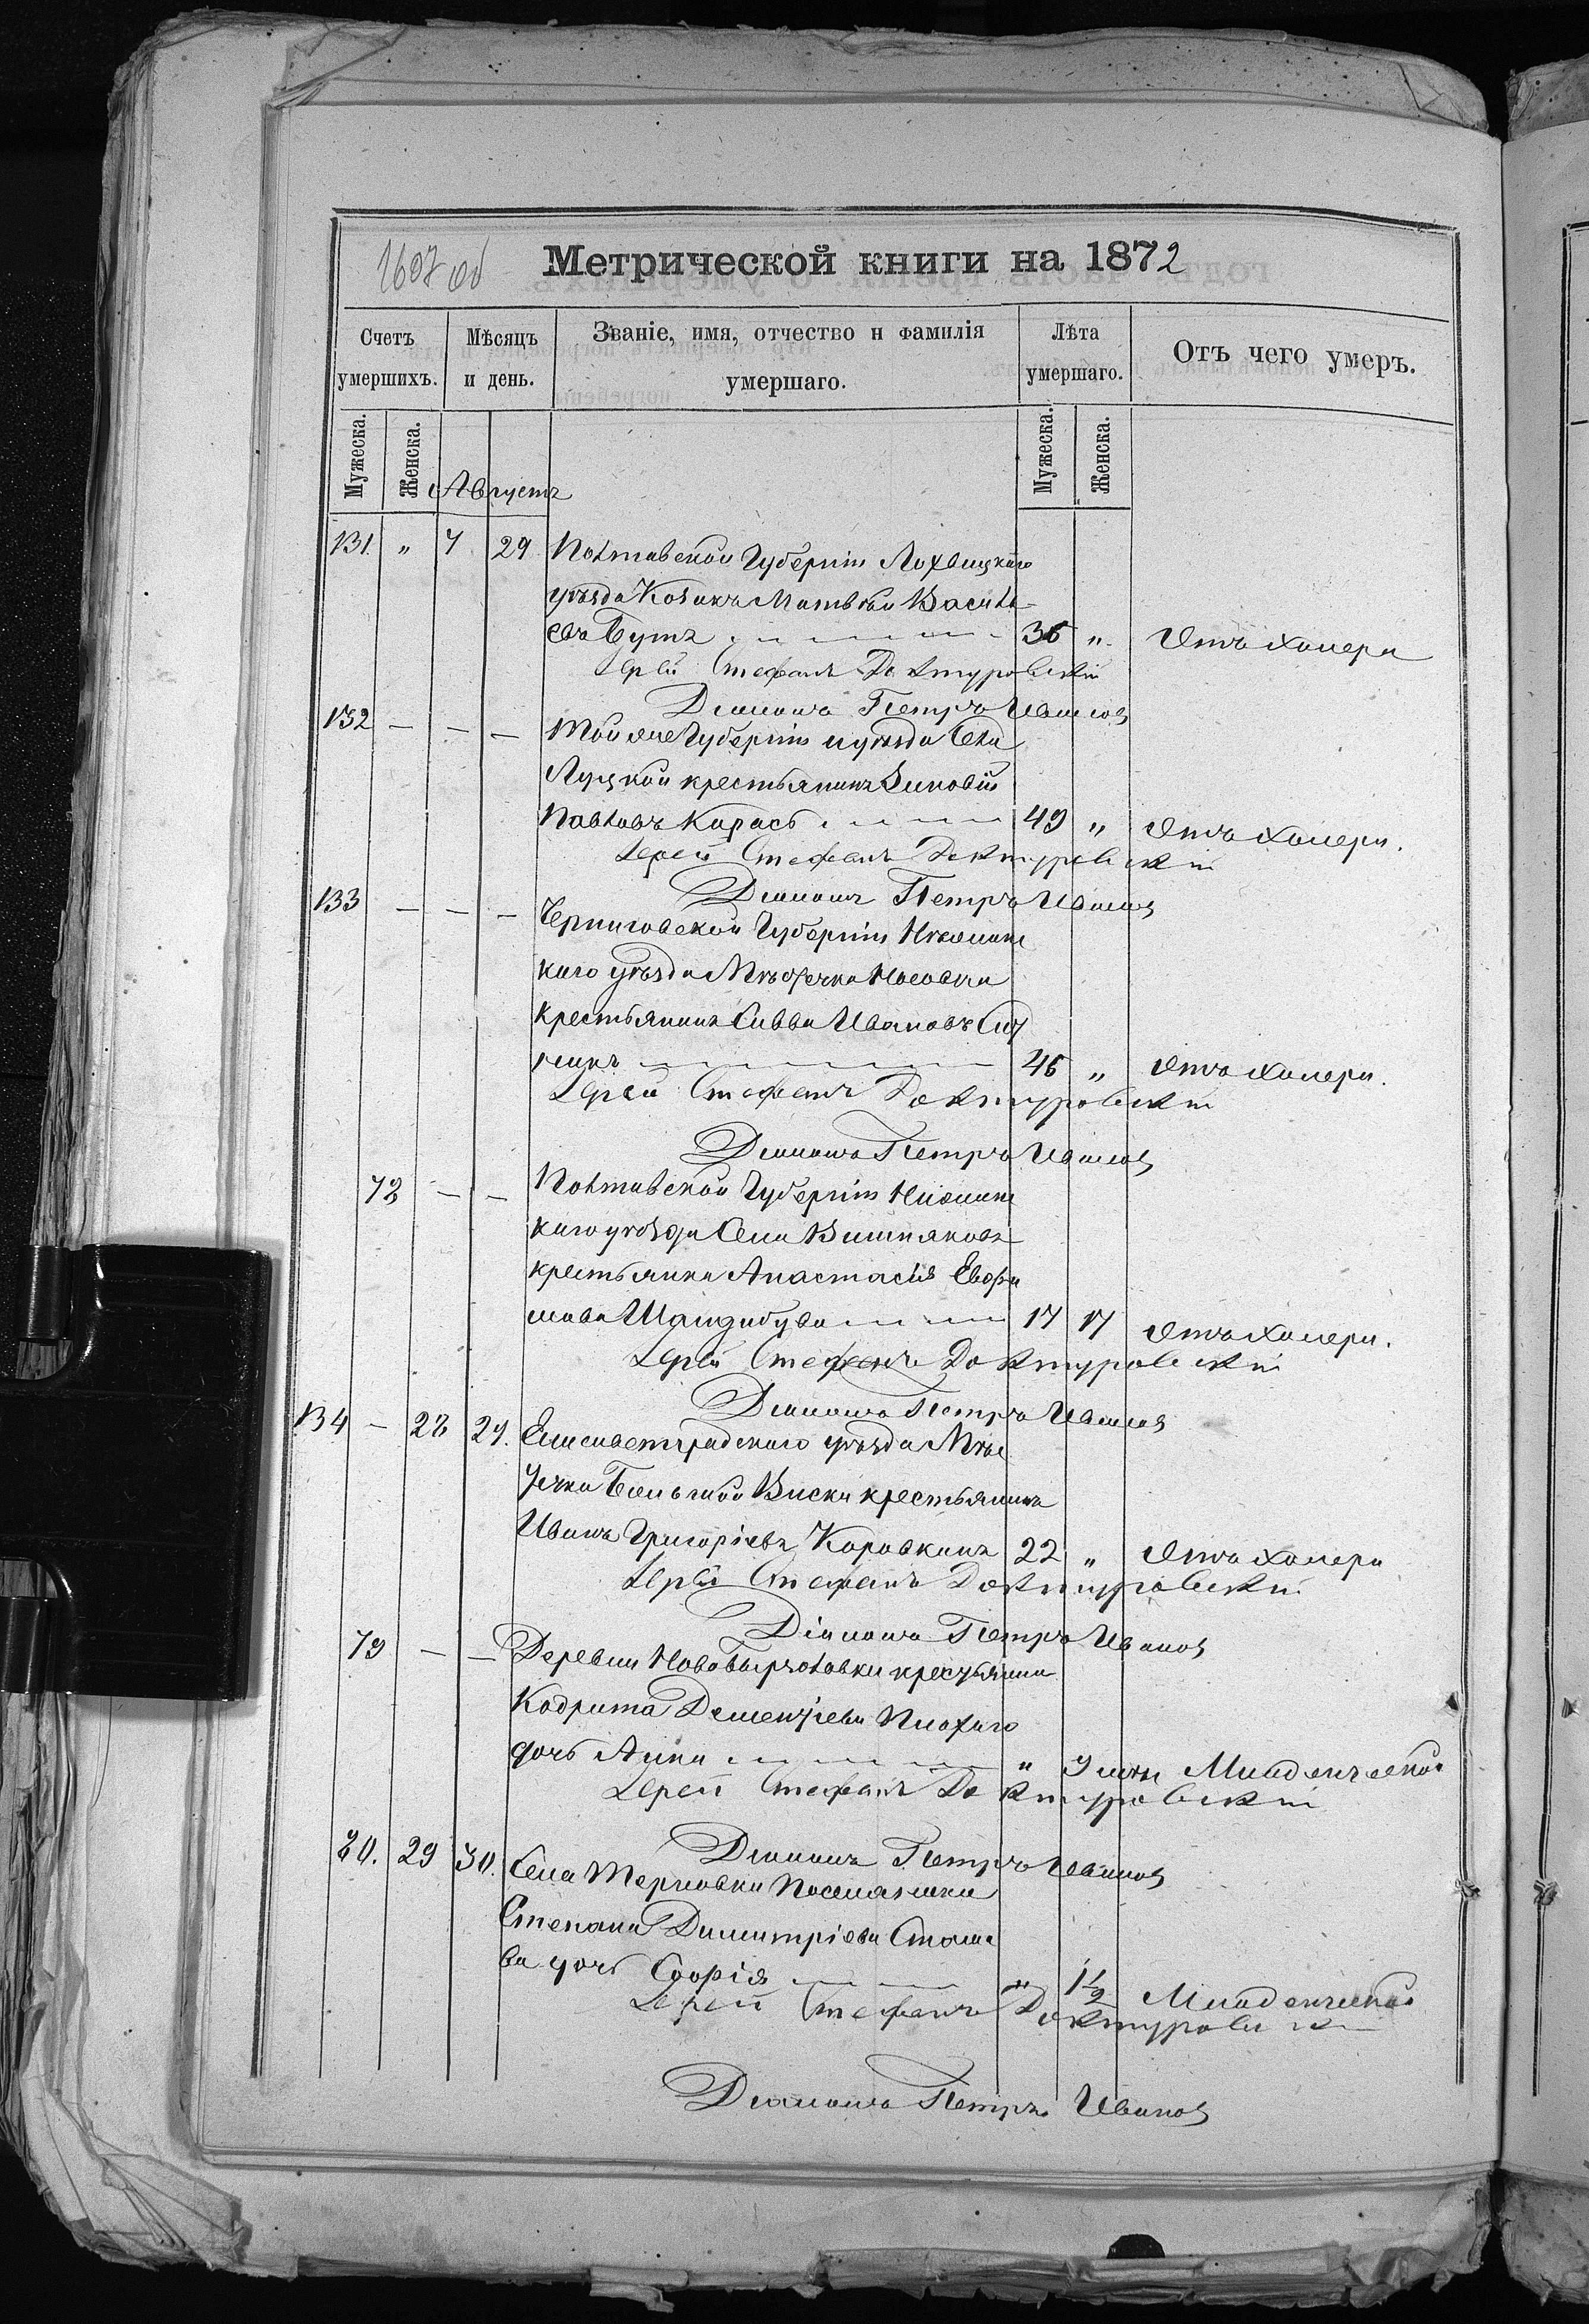 1607 об
Метрической книги на 1872
Счетъ умершихъ.
Мѣсяцъ и день.
Званіе, имя, отчество и фамилія умершаго.
Лѣта умершаго.
Отъ чего умеръ.
Мужеска. Женска. Августъ Мужеска. Женска.
131. " 7 29 Полтавской Губерніи Лохвицкаго
уѣзда Козакъ Матвѣй Василь
евъ Бутъ 36 " Отъ холеры
Іерей Стефанъ Доктуровскій
Діаконъ Петръ Иванов
132 — — — Той же Губерніи и уѣзда Села
Луцкой крестьянинъ Зиновій
Павловъ Карась 49 " Отъ холеры.
Іерей Стефанъ Доктуровскій
Діаконъ Петръ Иванов
133 — — — Черниговской Губерніи Нѣжинс
каго уѣзда Мѣстечка Носовки
крестьянинъ Савва Ивановъ
46 " Отъ холеры.
Іерей Стефанъ Доктуровскій
Діаконъ Петръ Иванов
78 — — Полтавской Губерніи
каго уѣзда Села Вишняковъ
крестьянка Анастасія Евфи
мова 17 17 Отъ холеры.
Іерей Стефанъ Доктуровскій
Діаконъ Петръ Иванов
134 — 28 29. Елисаветградскаго уѣзда Мѣс
течка Большой Виски крестьянинъ
Иванъ Григоріевъ Коровкинъ 22 " Отъ холеры
Іерей Стефанъ Доктуровскій
Діаконъ Петръ Иванов
79 — — Деревни крестьянина
Кодрата Дементіева
дочь Анна " Младенческой
Іерей Стефанъ Доктуровскій
Діаконъ Петръ Иванов
80. 29 30. Села Терновки Поселянина
Степана Димитріева
ва дочь Софія " 1½ Младенческой
Іерей Стефанъ Доктуровскій
Діаконъ Петръ Иванов